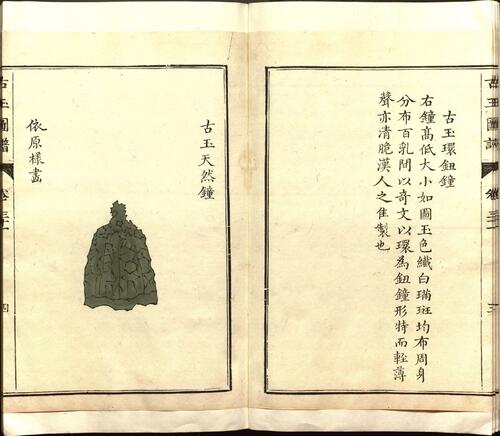 古玉圖譜
古玉環鈕鐘
右鐘高低大小如圖玉色纎白璊斑均布周身
分布百乳間以奇文以環爲鈕鐘形特而輕薄
聲亦清脆漢人之佳製也
三
古玉天然鐘
依原樣畫
古玉圖譜
四